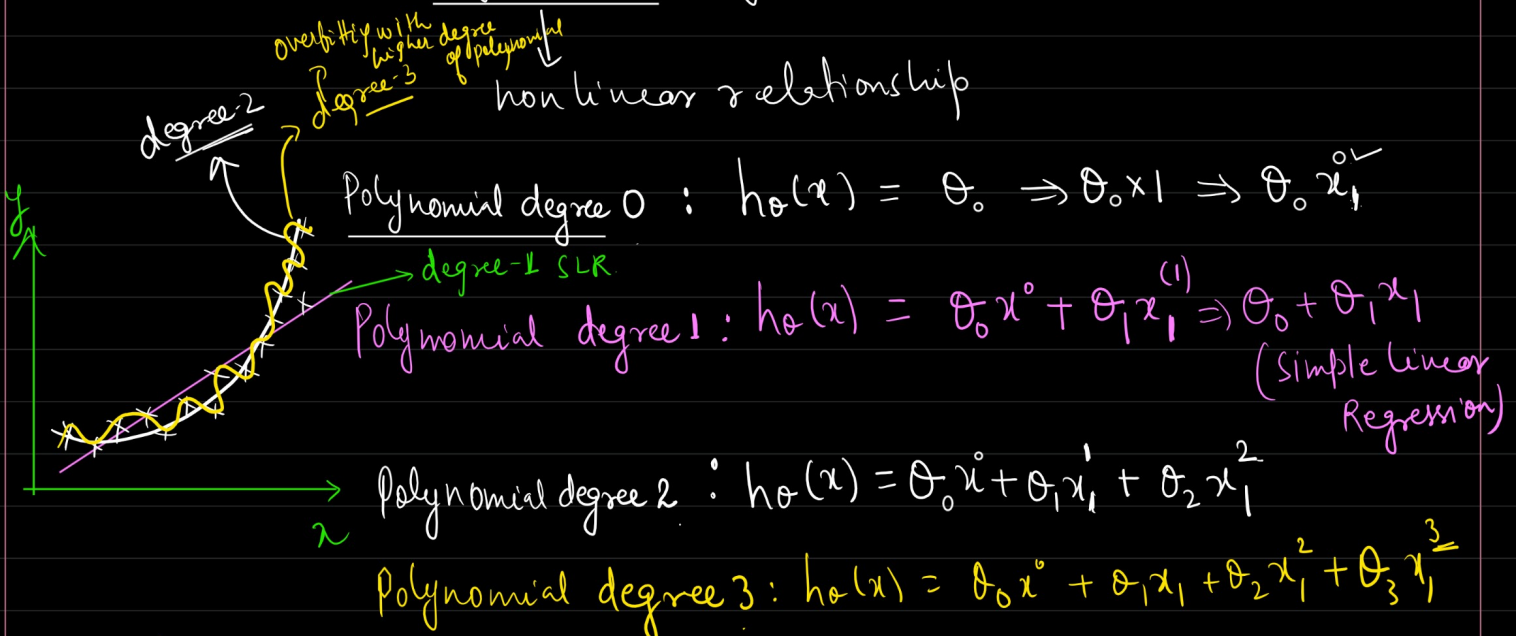 overfittiy with
higher degree
of polynomial
degree-3
non linear relationship
degree-2
Polynomial degree 0 : hθ(x) = θ₀ ⇒ θ₀×1 ⇒ θ₀x₁⁰
y
degree-1 SLR.
Polynomial degree 1 : hθ(x) = θ₀x⁰ + θ₁x₁⁽¹⁾ ⇒ θ₀ + θ₁x₁
(Simple linear
Regression)
Polynomial degree 2 : hθ(x) = θ₀x⁰ + θ₁x₁¹ + θ₂x₁²
x
Polynomial degree 3 : hθ(x) = θ₀x⁰ + θ₁x₁ + θ₂x₁² + θ₃x₁³